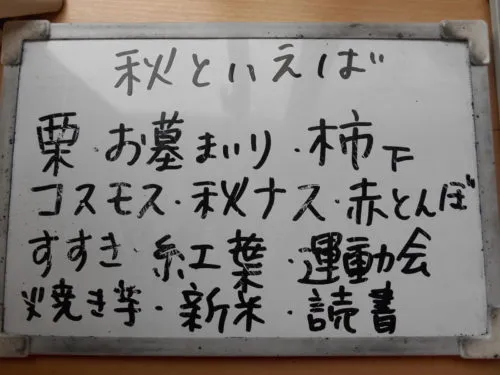 秋といえば
栗・お墓まいり・柿下
コスモス・秋ナス・赤とんぼ
すすき・紅葉・運動会
焼き芋・新米・読書